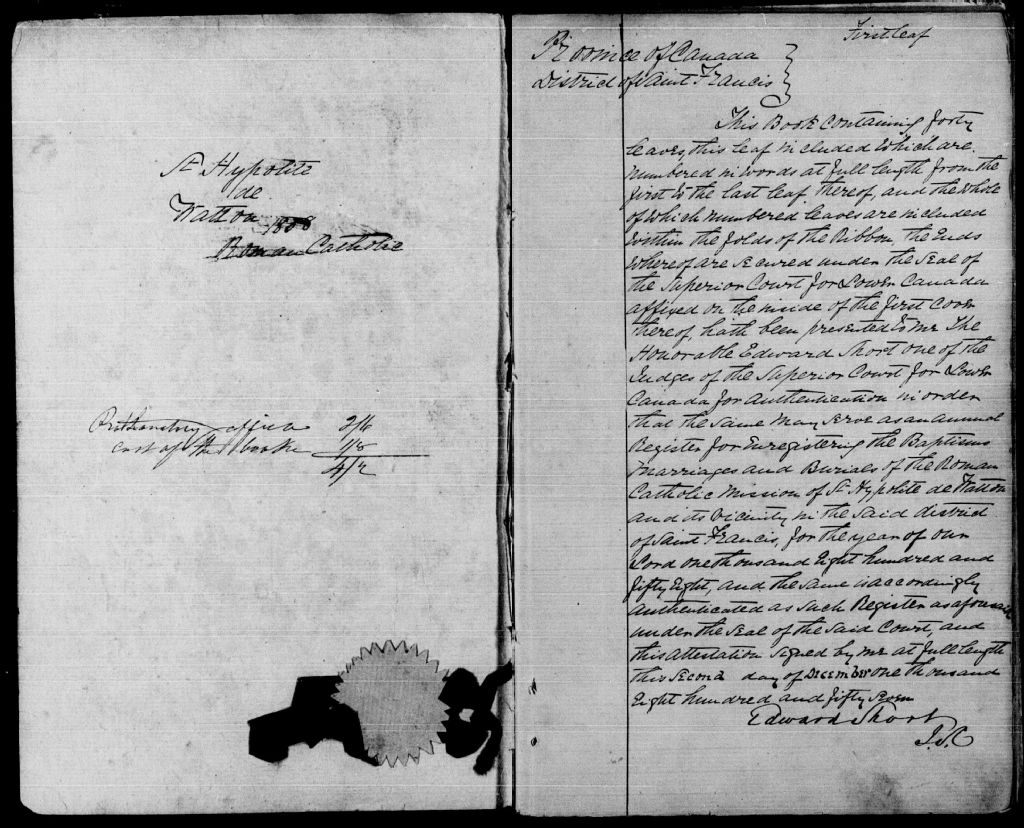 St Hypolite
de
Watton
1858
Roman Catholic
Prothonotary office 2/6
cost of the book 1/8
4/2
First leaf
Province of Canada
District of Saint Francis
This Book containing forty
leaves, this leaf included which are
numbered in words at full length from the
first to the last leaf thereof, and the whole
of which numbered leaves are included
within the folds of the Ribbon, the Ends
whereof are secured under the Seal of
the Superior Court for Lower Canada
affixed on the inside of the first cover
thereof, hath been presented to me The
Honorable Edward Short one of the
Judges of the Superior Court for Lower
Canada for authentication in order
that the same may serve as an annual
Register for Enregistering the Baptisms
Marriages and Burials of the Roman
Catholic Mission of St Hypolite de Watton
and its vicinity in the said district
of Saint Francis, for the year of our
Lord one thousand Eight hundred and
fifty Eight, and the same is accordingly
authenticated as such Register as aforesaid
under the Seal of the Said Court, and
this attestation signed by me at full length
this Second day of December one thousand
Eight hundred and fifty seven
Edward Short
J.S.C